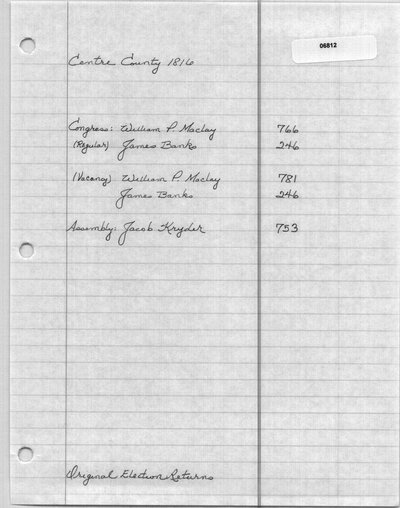 06812
Centre County 1816
Congress: William P. Maclay 766
(Regular) James Banks 246
(Vacancy) William P. Maclay 781
James Banks 246
Assembly: Jacob Kryder 753
Original Election Returns